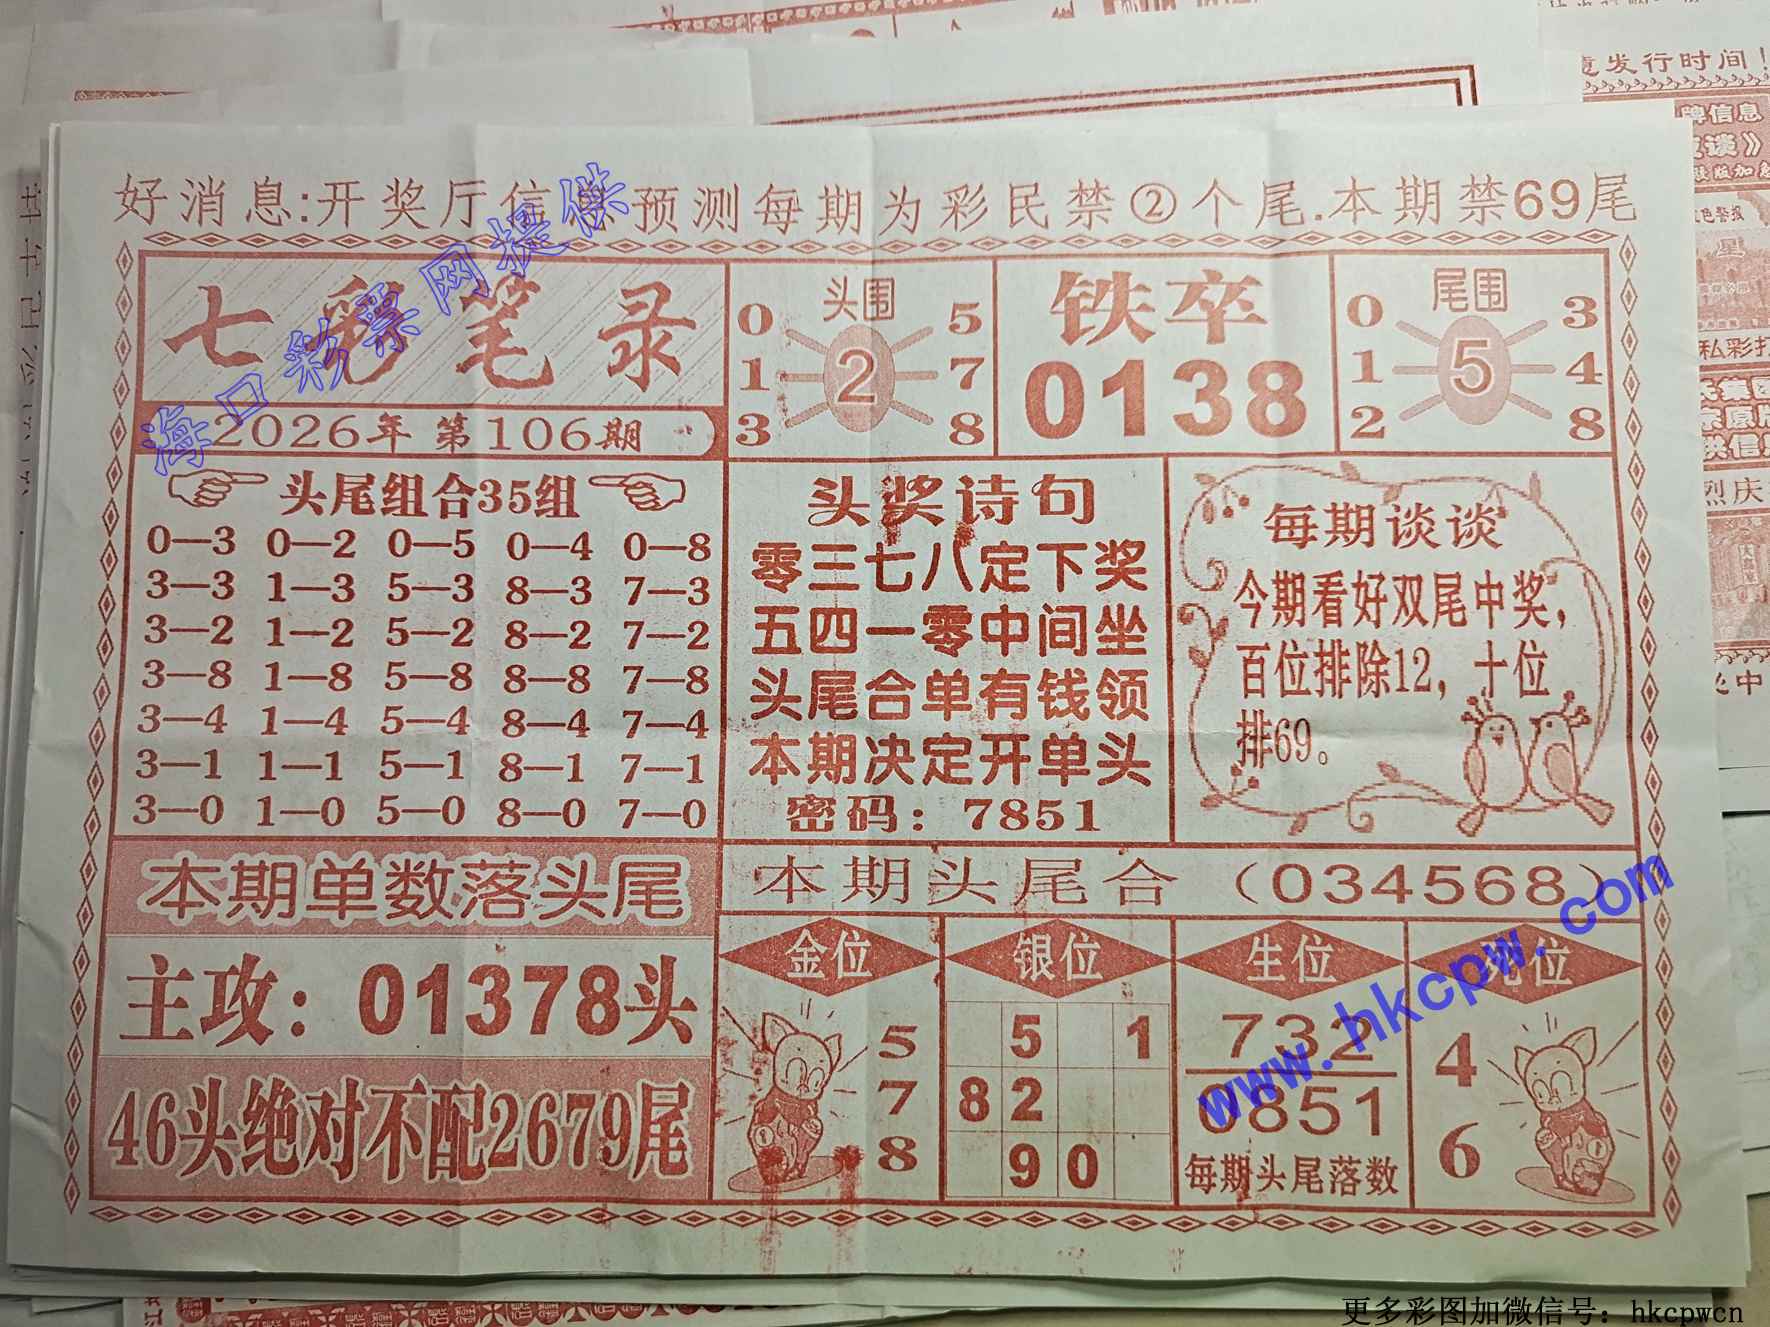 意发行时间!
牌信息
谈》
好消息:开奖厅信息预测每期为彩民禁②个尾.本期禁69尾
七彩笔录
2026年 第106期
头围
0 5
1 2 7
3 8
铁卒
0138
尾围
0 3
1 5 4
2 8
头尾组合35组
0—3 0—2 0—5 0—4 0—8
3—3 1—3 5—3 8—3 7—3
3—2 1—2 5—2 8—2 7—2
3—8 1—8 5—8 8—8 7—8
3—4 1—4 5—4 8—4 7—4
3—1 1—1 5—1 8—1 7—1
3—0 1—0 5—0 8—0 7—0
头奖诗句
零三七八定下奖
五四一零中间坐
头尾合单有钱领
本期决定开单头
密码: 7851
每期谈谈
今期看好双尾中奖,
百位排除12, 十位
排69。
本期单数落头尾
主攻: 01378头
46头绝对不配2679尾
本期头尾合 (034568)
金位
5
7
8
银位
5 1
8 2
9 0
生位
732
0851
每期头尾落数
位
4
6
海口彩票网提供
www.hkcpw.com
私彩打
集团
原版
供信息
烈庆
火中
更多彩图加微信号: hkcpwcn